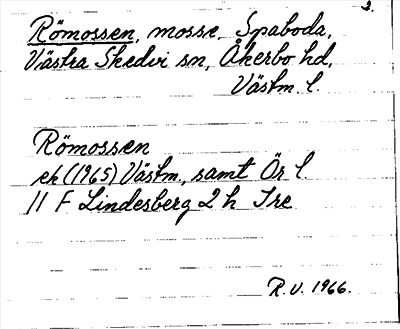 3.
Römossen, mosse, Spaboda,
Västra Skedvi sn, Åkerbo hd,
Västm. l.
Römossen
ek (1965) Västm., samt Ör l.
11 F Lindesberg 2 h Tre
R.V. 1966.